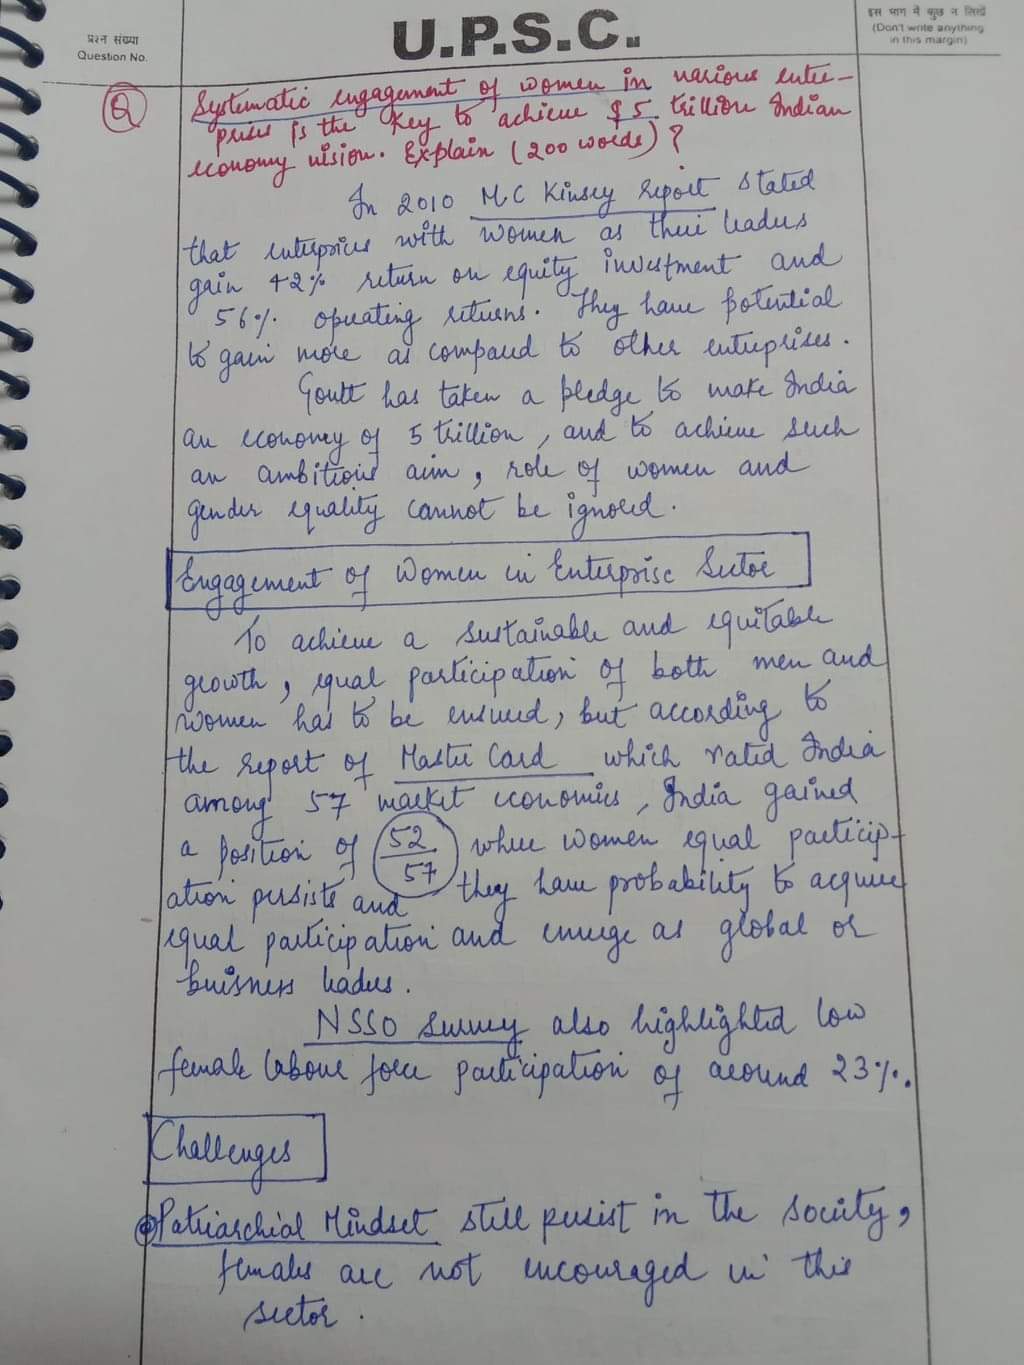 प्रश्न संख्या
Question No.
U.P.S.C.
इस भाग में कुछ न लिखें
(Don't write anything
in this margin)
Q
Systematic engagement of women in various enter-
prises is the key to achieve $5 trillion Indian
economy vision. Explain (200 words)?
In 2010 MC Kinsey report stated
that enterprices with women as their leaders
gain 42% return on equity investment and
56%. operating returns. They have potential
to gain more as compared to other enterprises.
Govtt has taken a pledge to make India
an economy of 5 trillion, and to achieve such
an ambitious aim, role of women and
gender equality cannot be ignored.
Engagement of Women in Enterprise Sector
To achieve a sustainable and equitable
growth, equal participation of both men and
women has to be ensured, but according to
the report of Master Card which rated India
among 57 market economies, India gained
a position of 52/57 where women equal particip-
ation persists and they have probability to acquire
equal participation and emerge as global or
buisness leaders.
NSSO survey also highlighted low
female labour force participation of around 23%.
Challenges
Patriarchial Mindset still persist in the society,
females are not encouraged in this
sector.